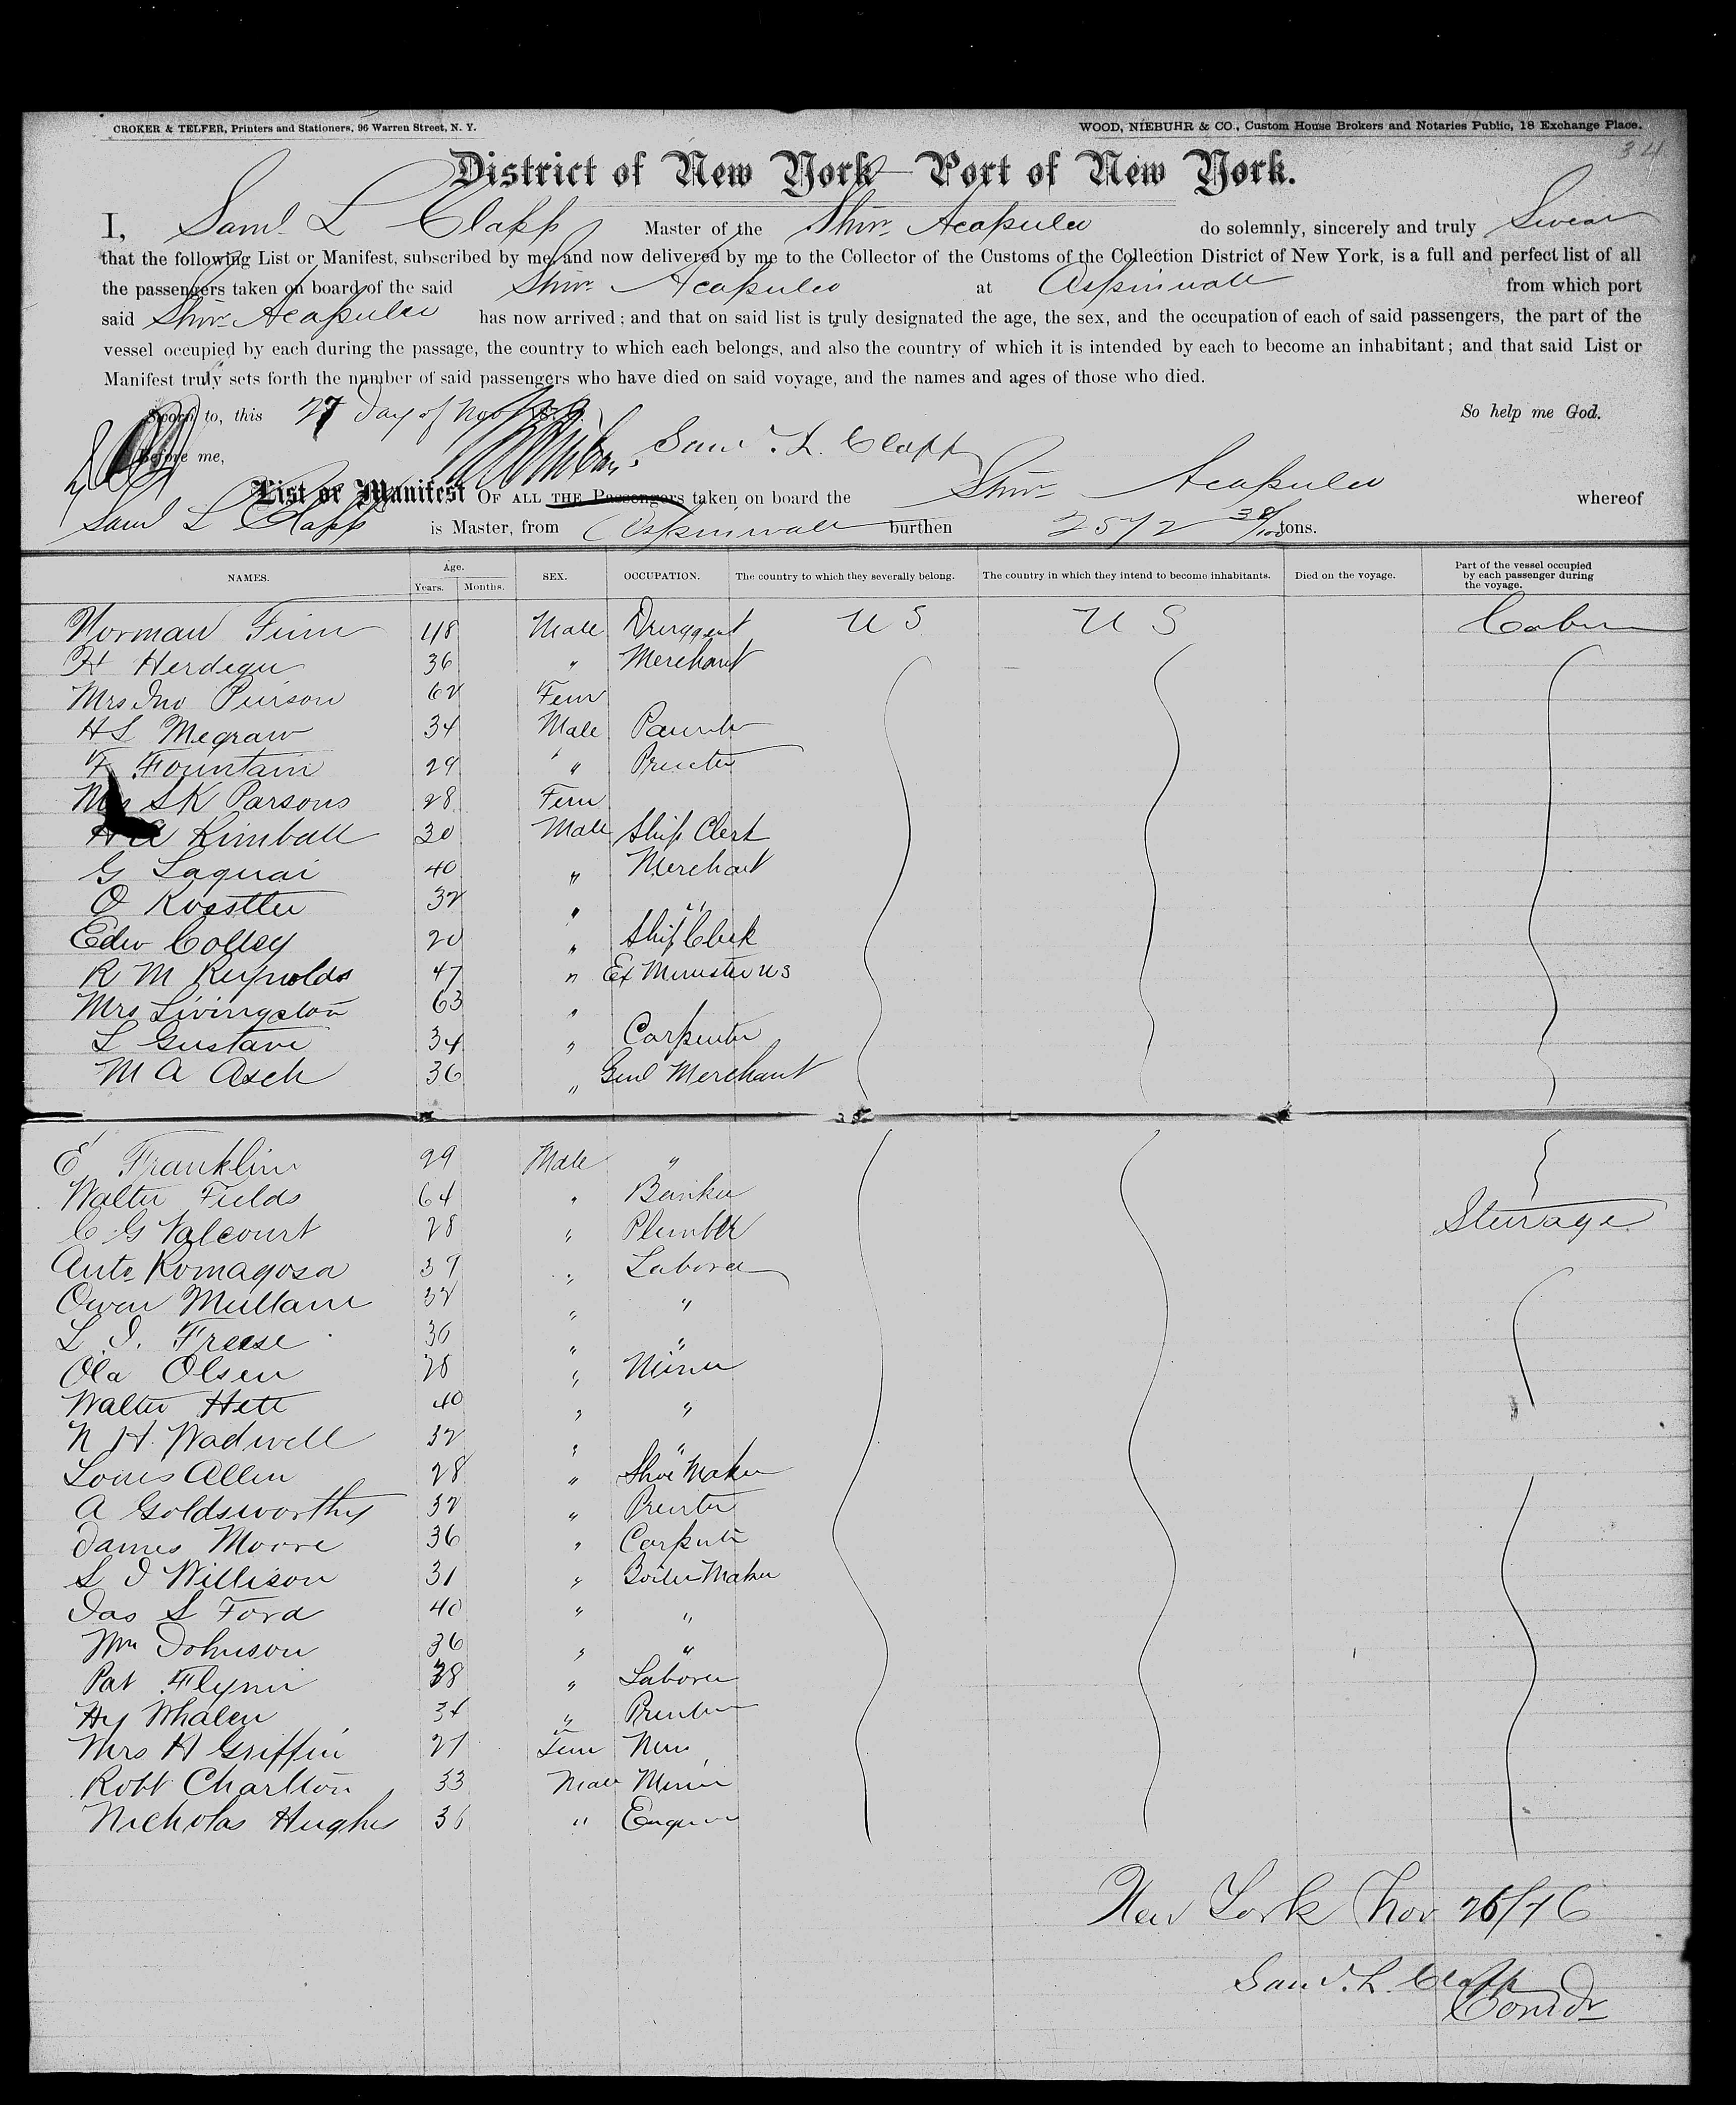 CROKER & TELFER, Printers and Stationers, 96 Warren Street, N. Y. WOOD, NIEBUHR & CO., Custom House Brokers and Notaries Public, 18 Exchange Place.
34
District of New York Port of New York.
I, Saml L Clapp Master of the Stmr Acapulco do solemnly, sincerely and truly Swear
that the following List or Manifest, subscribed by me and now delivered by me to the Collector of the Customs of the Collection District of New York, is a full and perfect list of all
the passengers taken on board of the said Stmr Acapulco at Aspinwall from which port
said Stmr Acapulco has now arrived; and that on said list is truly designated the age, the sex, and the occupation of each of said passengers, the part of the
vessel occupied by each during the passage, the country to which each belongs, and also the country of which it is intended by each to become an inhabitant; and that said List or
Manifest truly sets forth the number of said passengers who have died on said voyage, and the names and ages of those who died.
Sworn to, this 27 Day of Nov So help me God.
Before me, Saml. L. Clapp
List or Manifest OF ALL THE Passengers taken on board the Stmr Acapulco whereof
Saml L Clapp is Master, from Aspinwall burthen 2572 38/100 tons.
NAMES. Age. Years. Months. SEX. OCCUPATION. The country to which they severally belong. The country in which they intend to become inhabitants. Died on the voyage. Part of the vessel occupied by each passenger during the voyage.
Norman 48 Male U S U S Cabin
H 36 " Merchant
Mrs Jno Peirson 62 Fem
H S Megraw 34 Male
F Fountain 29 " Printer
Mrs S K Parsons 28 Fem
H A Kimball 30 Male Ship Clerk
G Laquai 40 " Merchant
O 32 " "
Edw Colley 20 " Ship Clerk
R M Reynolds 47 " Ex Minister US
Mrs Livingston 63 "
L Gustave 34 " Carpenter
M A Asch 36 " Genl Merchant
E Franklin 29 Male "
Walter Fields 64 " Banker
C G Valcourt 28 " Plumber Steerage
Anto Romagosa 39 " Laborer
Owen Mullane 32 " "
L. J. Freese 36 " "
Ola Olsen 28 " Miner
Walter Hett 40 " "
N H. Wadwell 32 " "
Louis Allen 28 " Shoe Maker
A Goldsworthy 32 " Printer
James Moore 36 " Carpenter
S J Willison 31 " Boiler Maker
Jas S Ford 40 " "
Wm Johnson 36 " "
Pat Flynn 38 " Laborer
Hy Whalen 34 " Printer
Mrs H Griffin 27 Fem
Robt Charlton 33 Male Miner
Nicholas Hughes 36 " Engineer
New York Nov 26/76
Saml. L. Clapp
Comdr